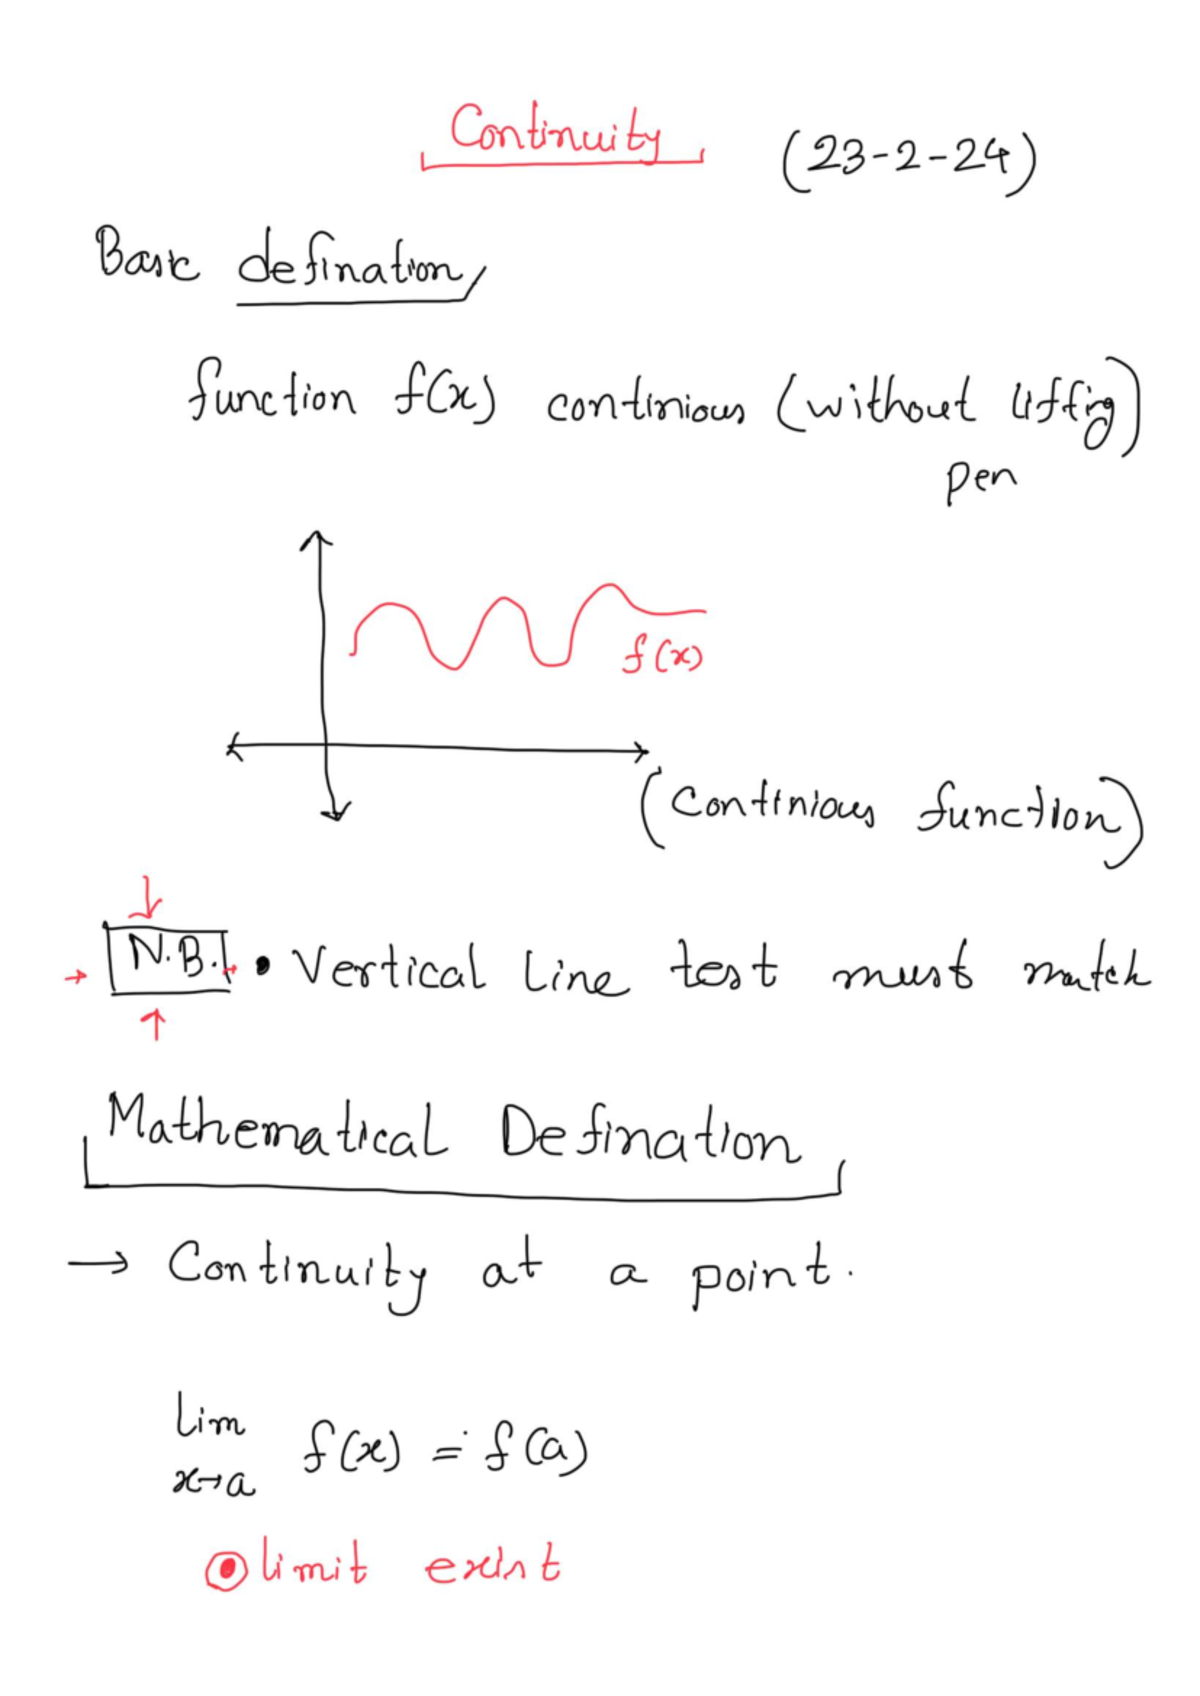 Continuity (23-2-24)
Basic defination
function f(x) continious (without liffing)
pen
f(x)
(Continious function)
N.B. • Vertical Line test must match
Mathematical Defination
→ Continuity at a point.
lim f(x) = f(a)
x→a
limit exist